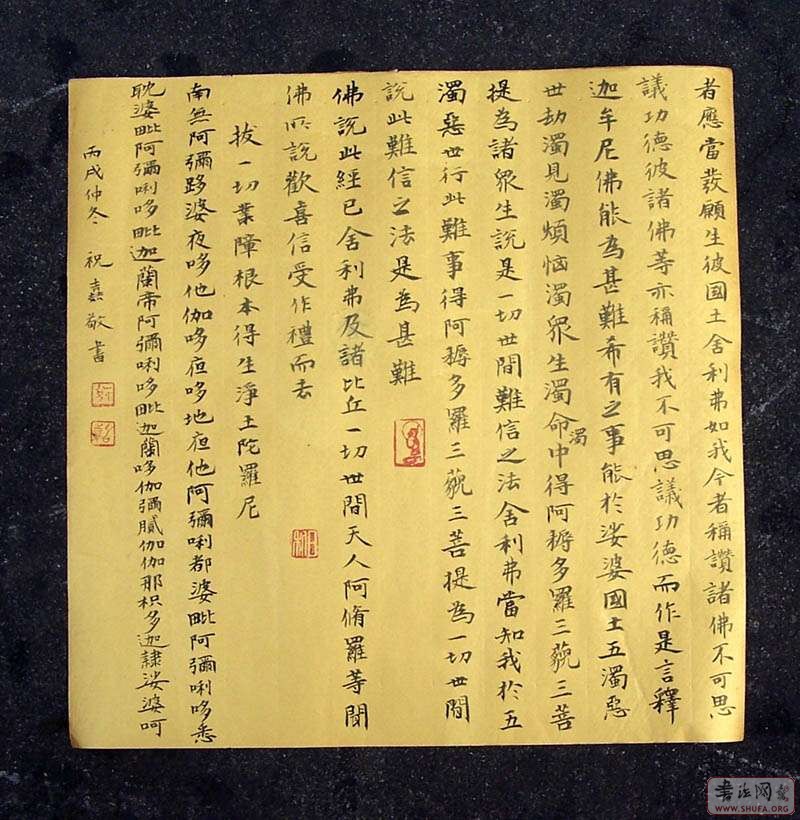 者應當發願生彼國土舍利弗如我今者稱讚諸佛不可思
議功德彼諸佛等亦稱讚我不可思議功德而作是言釋
迦牟尼佛能為甚難希有之事能於娑婆國土五濁惡
世劫濁見濁煩惱濁眾生濁命濁中得阿耨多羅三藐三菩
提為諸眾生說是一切世間難信之法舍利弗當知我於五
濁惡世行此難事得阿耨多羅三藐三菩提為一切世間
說此難信之法是為甚難
佛說此經已舍利弗及諸比丘一切世間天人阿脩羅等聞
佛所說歡喜信受作禮而去
拔一切業障根本得生淨土陀羅尼
南無阿彌跢婆夜哆他伽哆夜哆地夜他阿彌唎都婆毗阿彌唎哆悉
耽婆毗阿彌唎哆毗迦蘭帝阿彌唎哆毗迦蘭哆伽彌膩伽伽那枳多迦隸娑婆呵
丙戌仲冬 祝 敬書
書法网
WWW.SHUFA.ORG